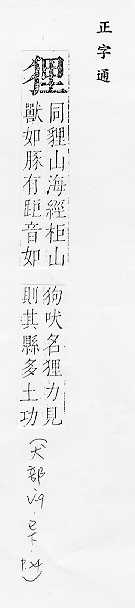 正字通
狸
同貍山海經柜山
獸如豚有距音如
狗吠名狸力見
則其縣多土功
(犬部 v.9. 巳下. P.24)